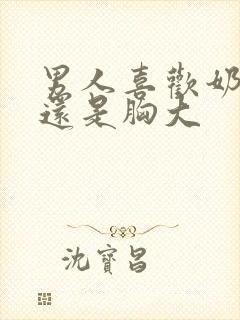 男人喜歡奶
還是胸大
沈寶昌